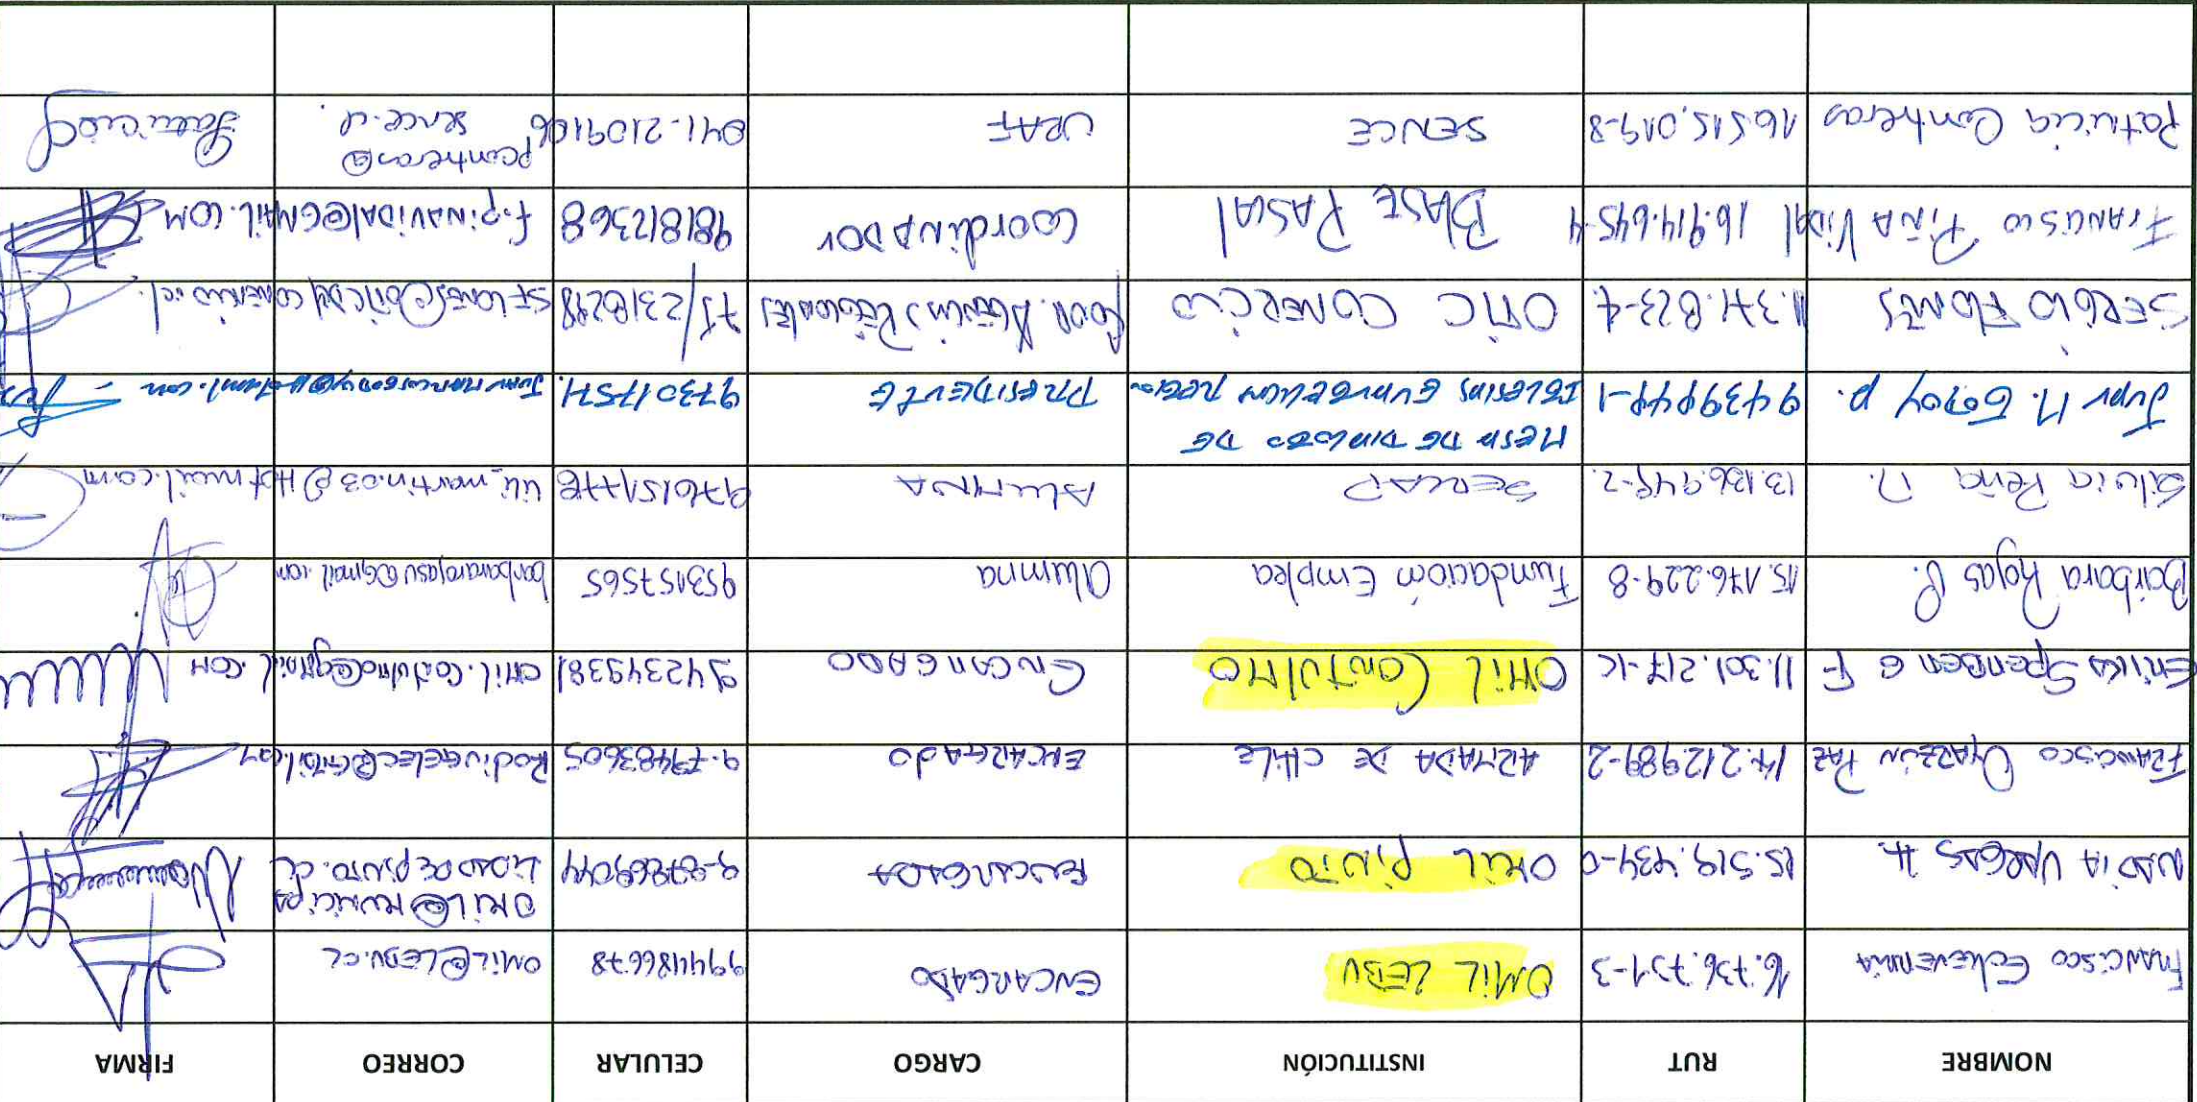 NOMBRE RUT INSTITUCIÓN CARGO CELULAR CORREO FIRMA
FRANCISCO Echeverria 16.736.731-3 OMIL LEBU ENCARGADO 994486678 OMIL@LEBU.CL
NADIA VARGAS H. 15.519.434-0 OMIL PINTO ENCARGADA 9-97869044 OMIL@MUNICIPA
LIDADDEPINTO.CL
FRANCISCO OYARZÚN PAZ 17.212.989-2 ARMADA DE CHILE ENCARGADO 9-79483605
ERIKA 11.301.217-K OMIL CONTULMO ENCARGADO 942349381 OMIL.CONTULMO@gmail.COM
Bárbara Rojas 15.176.229-8 Fundación Emplea alumna 953157565 barbararojasu@Gmail.com
Silvia Peña 13.136.945-2 SERCAP ALUMNA
MESA DE DIALOGO DE
JUAN M. GODOY P. 9439848-1 IGLESIAS EVANGELICAS REGION PRESIDENTE 97301757
SERGIO FLORES 11.371.823-4 OTIC COMERCIO COOR. AGENCIAS REGIONALES 75/2318298
FRANCISCO PIÑA VIDAL 16.914.645-4 BLASE PASCAL COORDINADOR 981812368 f.PiNAVIDAL@GMAIL.COM
Patricia Contreras 16.515.019-8 SENCE URAF 041-2109106 pcontreras@
sence.cl